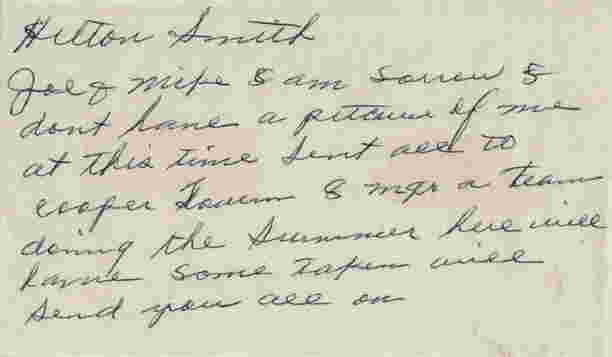 Hilton Smith
Joe & Mike I am sorrow I
dont have a pitcure of me
at this time sent all to
cooper Town I mgr a team
doing the Summer here will
have some taken will
send you all on